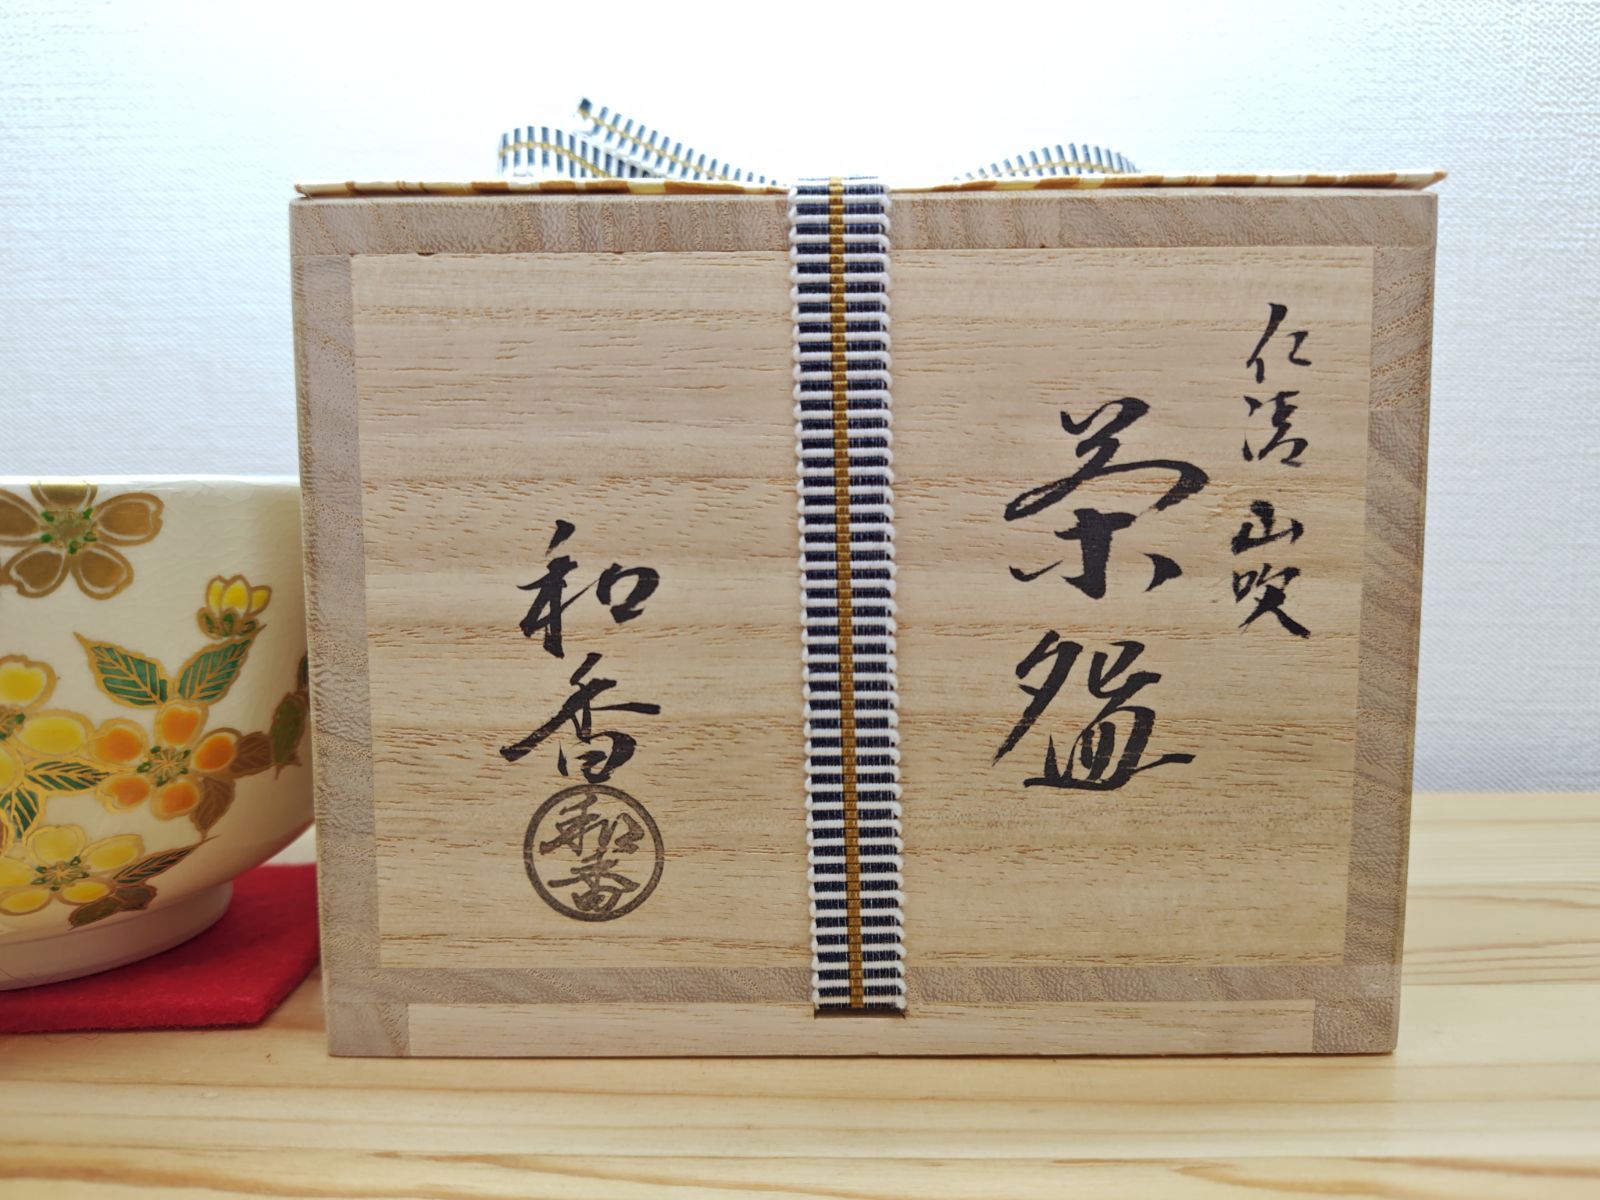 仁清 山吹
茶盌
和香
和香